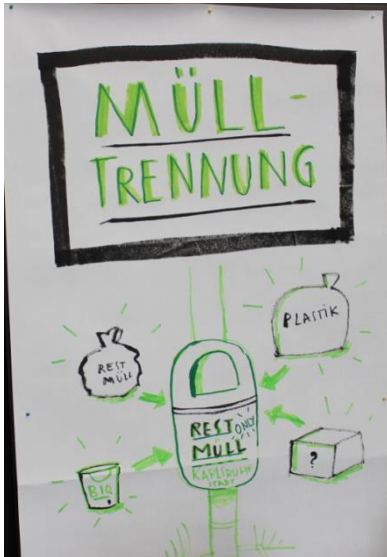 MÜLL-
TRENNUNG
REST
MÜLL
PLASTIK
REST
ONLY
MÜLL
KARLSRUHE
STADT
BIO
?